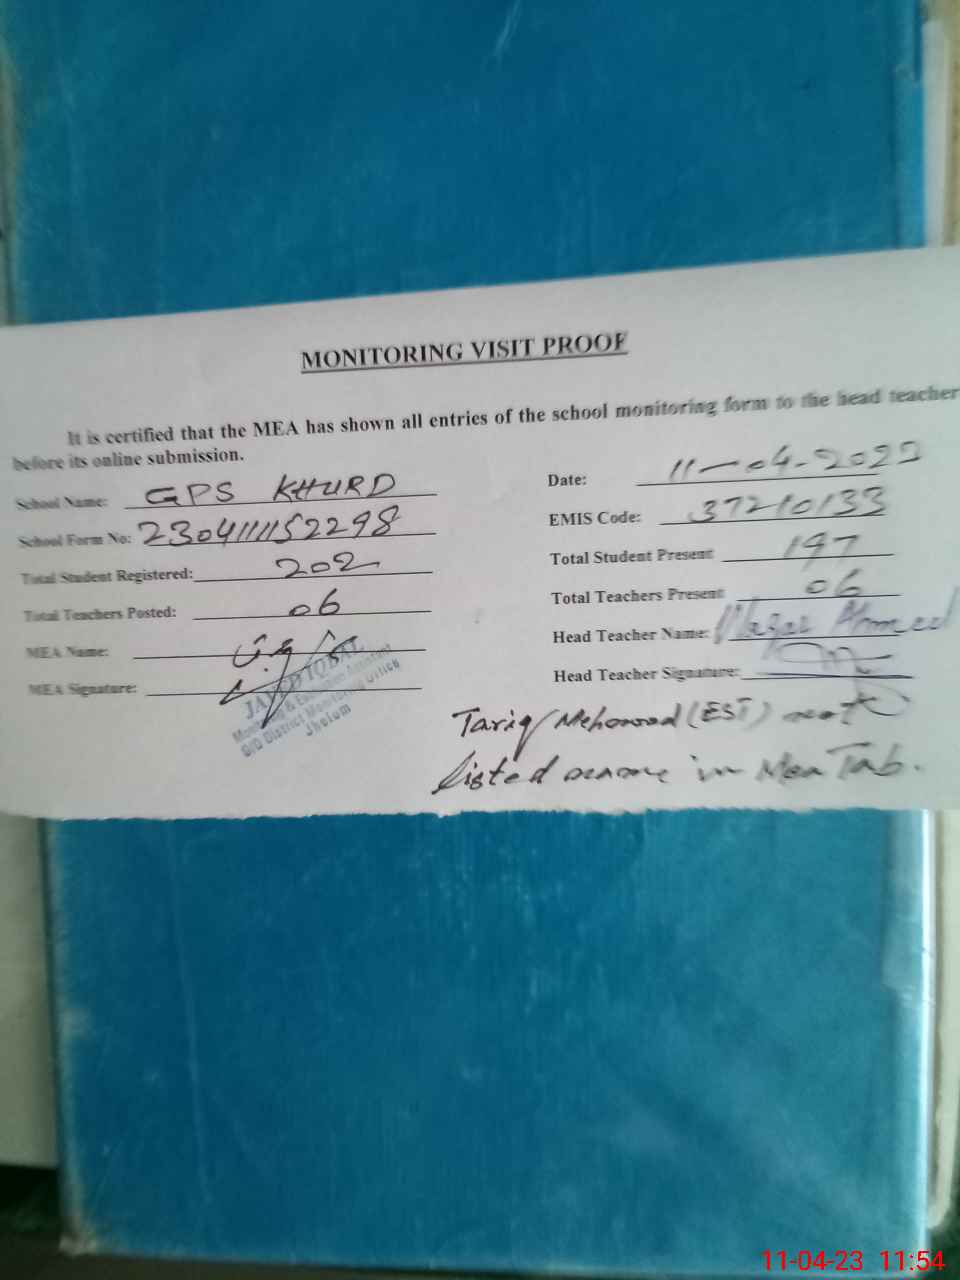 MONITORING VISIT PROOF
It is certified that the MEA has shown all entries of the school monitoring form to the head teacher
before its online submission.
School Name: GPS KHURD
Date: 11-04-2023
School Form No: 230411152298
EMIS Code: 37210133
Total Student Registered: 202
Total Student Present: 197
Total Teachers Posted: 06
Total Teachers Present: 06
MEA Name:
Head Teacher Name: Ahmed
MEA Signature:
Head Teacher Signature:
JAVED IQBAL
Monitoring & Evaluation Assistant
O/O District Monitoring Office
Jhelum
Tariq Mehmood (EST) not
listed name in Mea Tab.
11-04-23 11:54